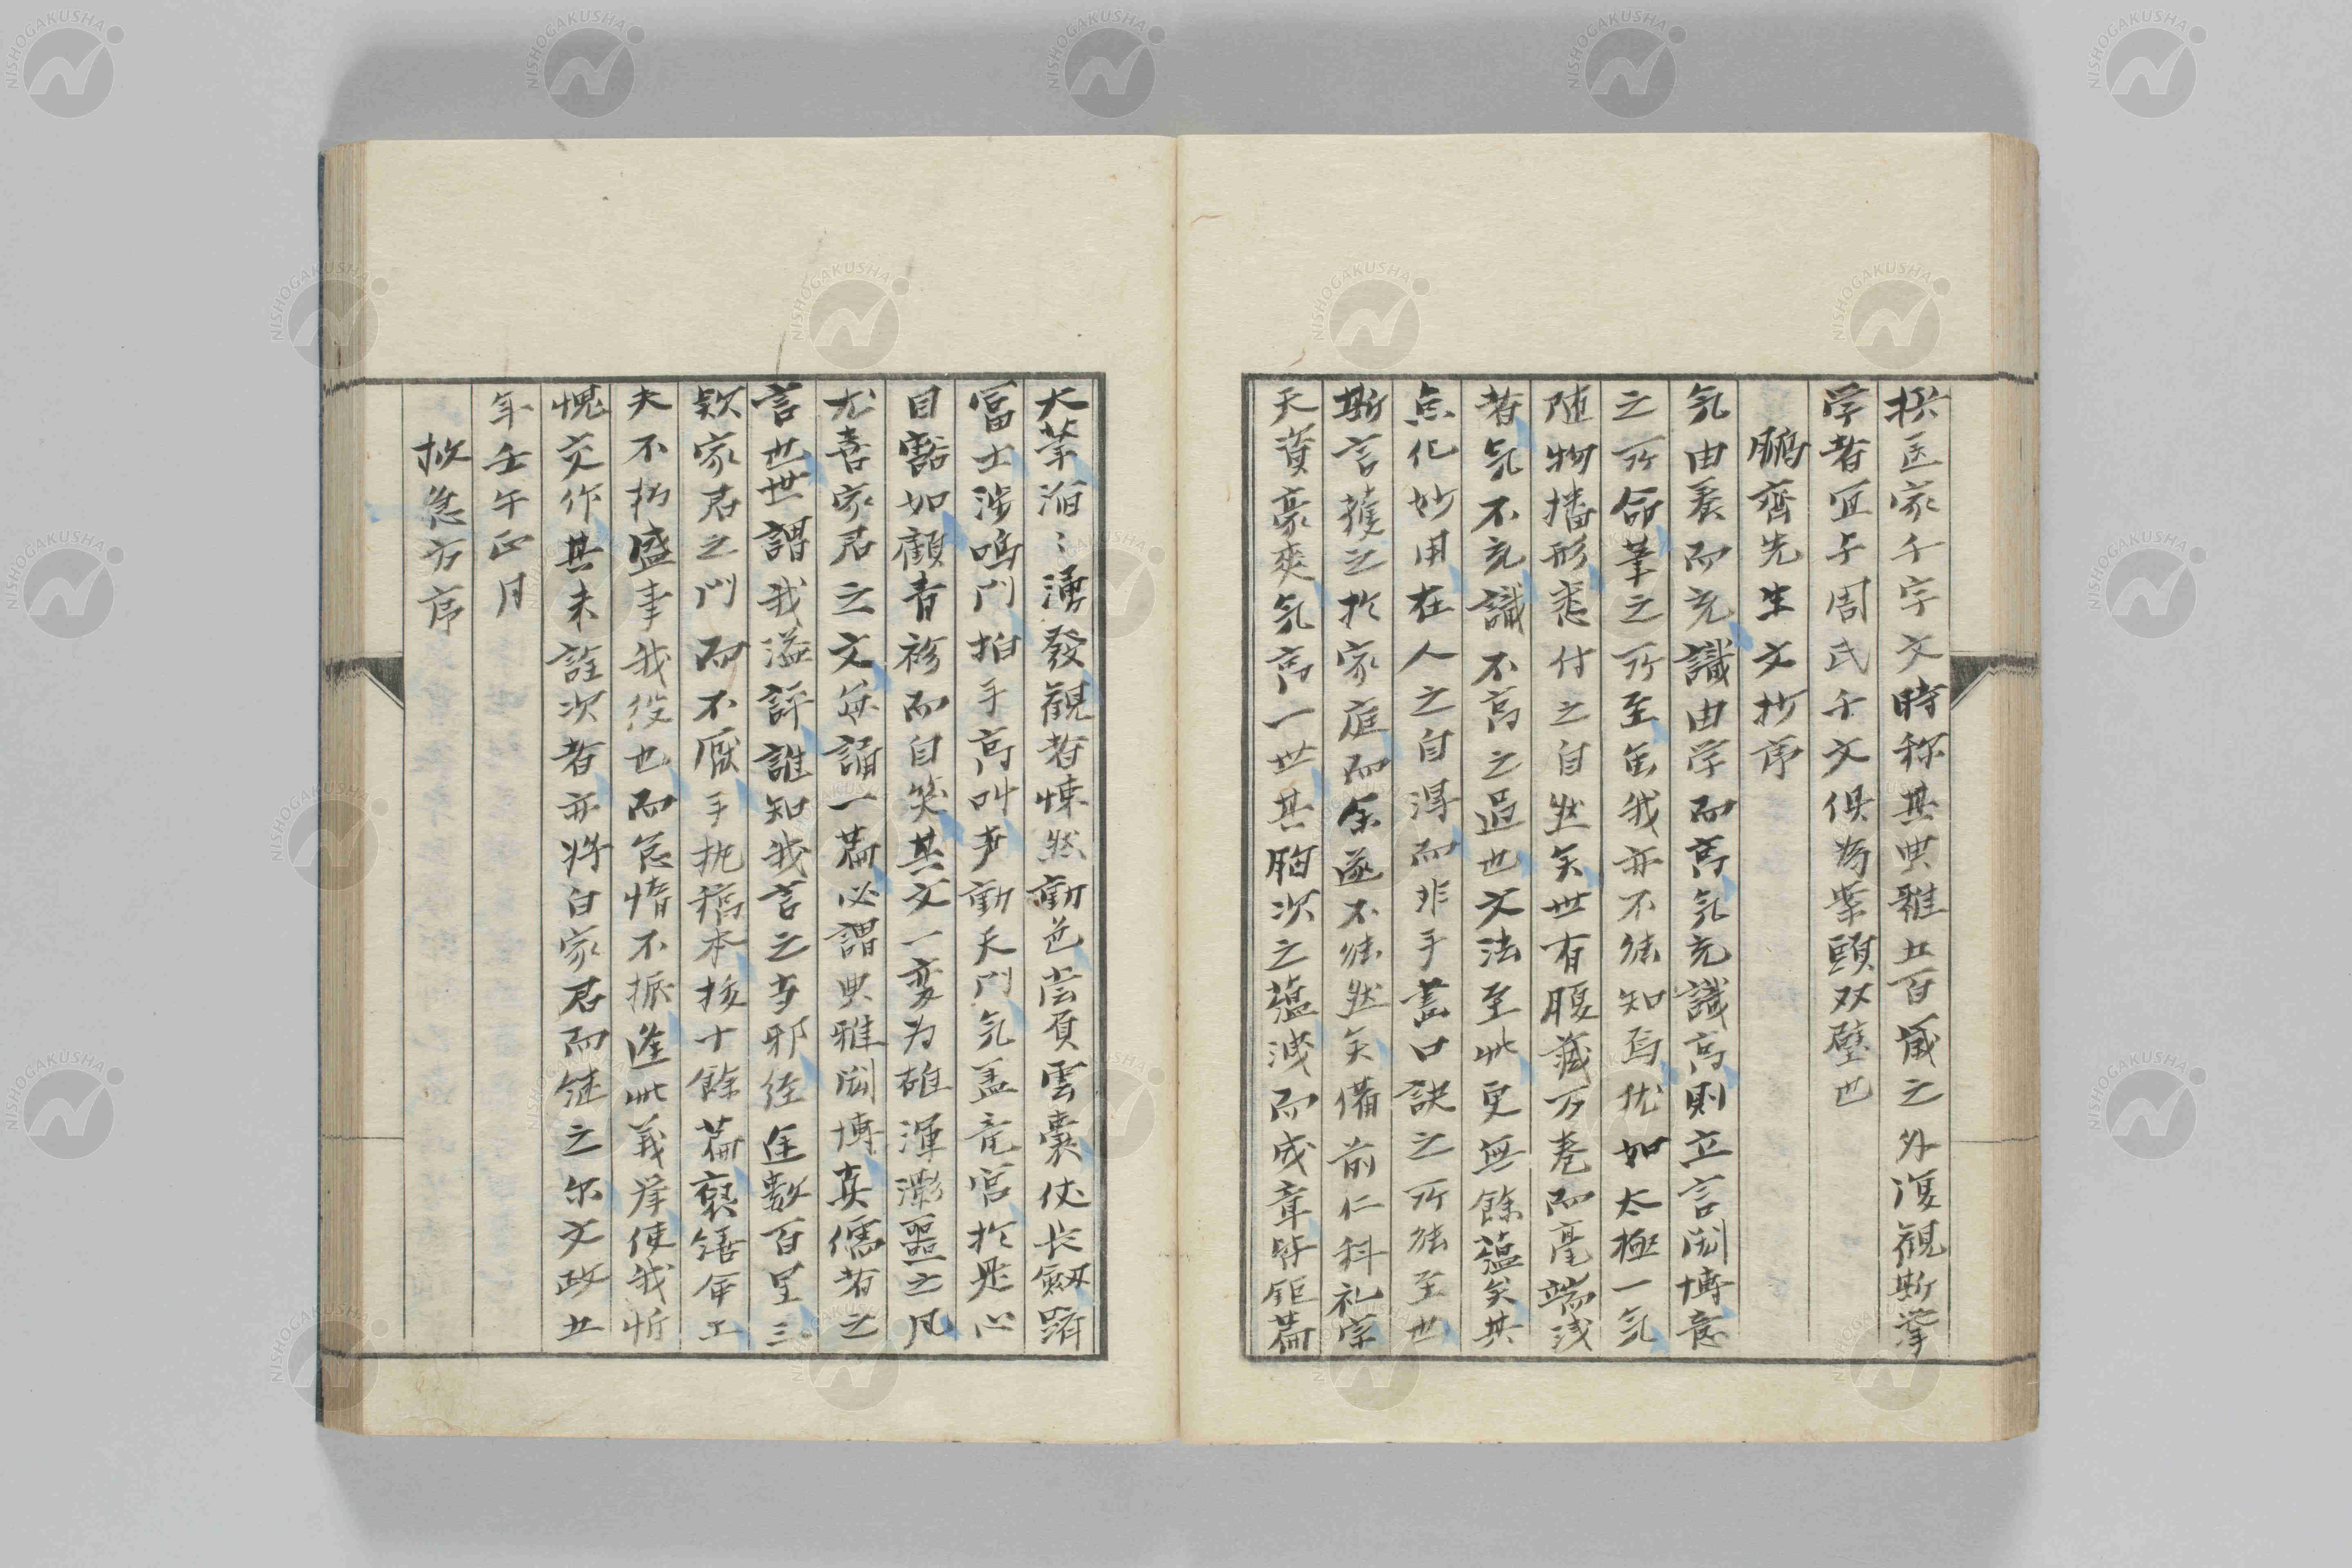 撰医家千字文時称其典雅五百歳之外復観斯挙
学者宜与周氏千文俱為案頭双璧也
鵬斎先生文抄序
気由養而充識由学而高気充識高則立言閎博意
之所命筆之所至缶我亦不能知焉犹如太極一気
随物播形悉付之自然矣世有腹蔵万巻而毫端浅
者気不充識不高之過也文法至此更無餘蘊矣其
点化妙用在人之自得而非手書口訣之所能至也
斯言獲之於家庭而余遂不能然矣備前仁科礼宗
天資豪爽気高一世其胸次之蘊溲而成章皆鉅篇
大筆滔〻湧発観者悚然動色嘗負雲嚢仗長剣躋
富士渉鳴門拍手高叫声動天門気盖竜宮於是心
目豁如顧旹祢而自笑其文一変為雄渾澎噩之凡
尤喜家君之文每誦一篇必謂典雅閎博真儒者之
言也世謂我溢評誰知我言之有邪径往数百里三
欵家君之門而不厭手执稿本挍十餘篇裒繕傭工
夫不朽盛事我役也而怠惰不振逢此義挙使我忻
愧交作其未詮次者亦将白家君而継之尓文政五
年壬午正月
救急方序